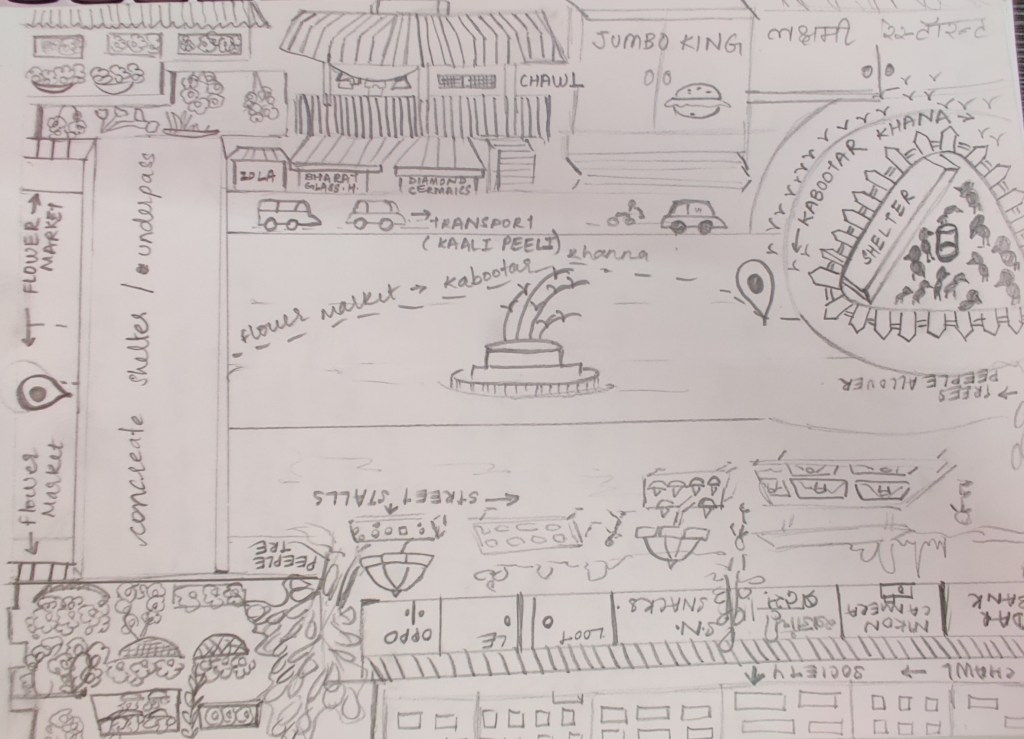 JUMBO KING
लक्षमी रेस्टोरन्ट
CHAWL
KABOOTAR KHANA
SHELTER
ZOLA
BHARAT
GLASS.H.
DIAMOND
CERMAICS
TRANSPORT
(KAALI PEELI)
flower market → kabootar khanna
FLOWER
MARKET
concreate shelter / underpass
flower
Market
TREES
PEEPLE ALLOVER
STREET STALLS
PEEPLE
TRE
OPPO
LE
LOOT
S.N.
SNACKS.
NIKON
CAMERA
DAR
BANK
CHAWL
SOCIETY